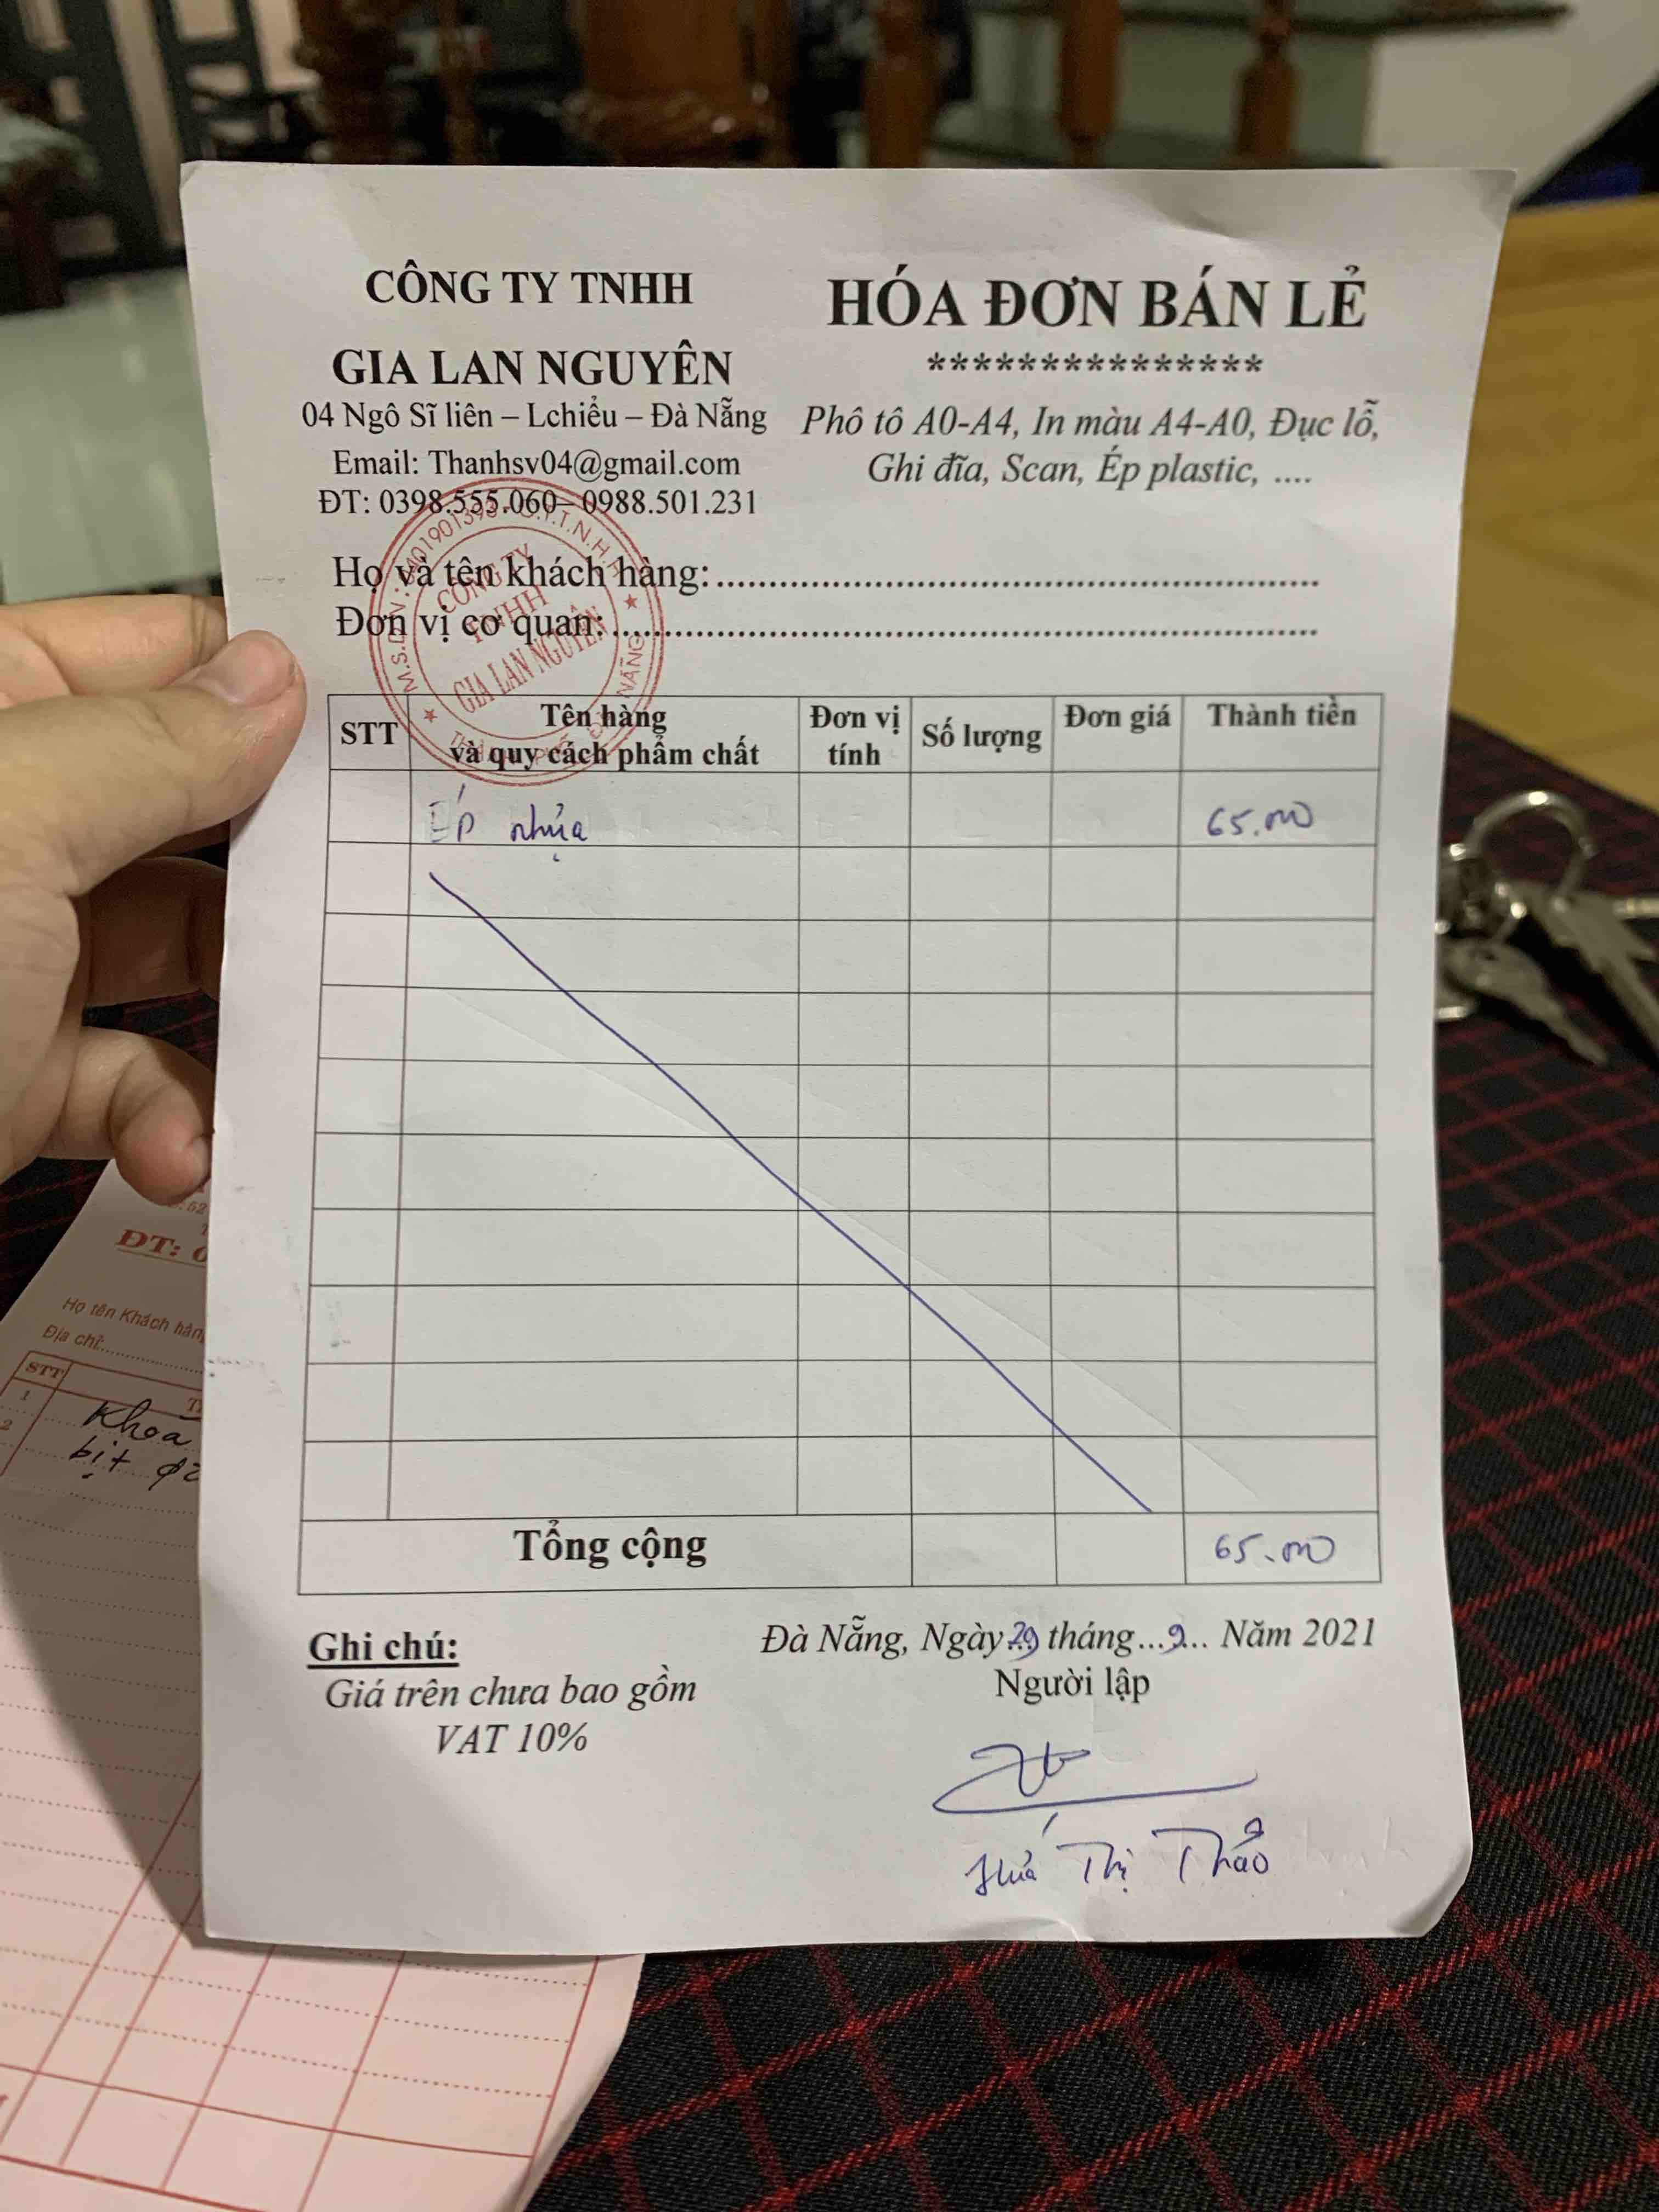 CÔNG TY TNHH
GIA LAN NGUYÊN
04 Ngô Sĩ liên – Lchiểu – Đà Nẵng
Email: Thanhsv04@gmail.com
ĐT: 0398.555.060– 0988.501.231
HÓA ĐƠN BÁN LẺ
***************
Phô tô A0-A4, In màu A4-A0, Đục lỗ,
Ghi đĩa, Scan, Ép plastic, ....
Họ và tên khách hàng:
Đơn vị cơ quan:
M.S.D.N: C.T.T.N.H.H
CÔNG TY
TNHH
GIA LAN NGUYÊN
STT Tên hàng và quy cách phẩm chất Đơn vị tính Số lượng Đơn giá Thành tiền
Ép nhựa 65.000
Tổng cộng 65.000
Ghi chú:
Giá trên chưa bao gồm
VAT 10%
Đà Nẵng, Ngày 29 tháng...9... Năm 2021
Người lập
Hứa Thị Thảo
ĐT: 0
Họ tên Khách hàn
Địa chỉ:
STT
1 Khoá
2 bịt